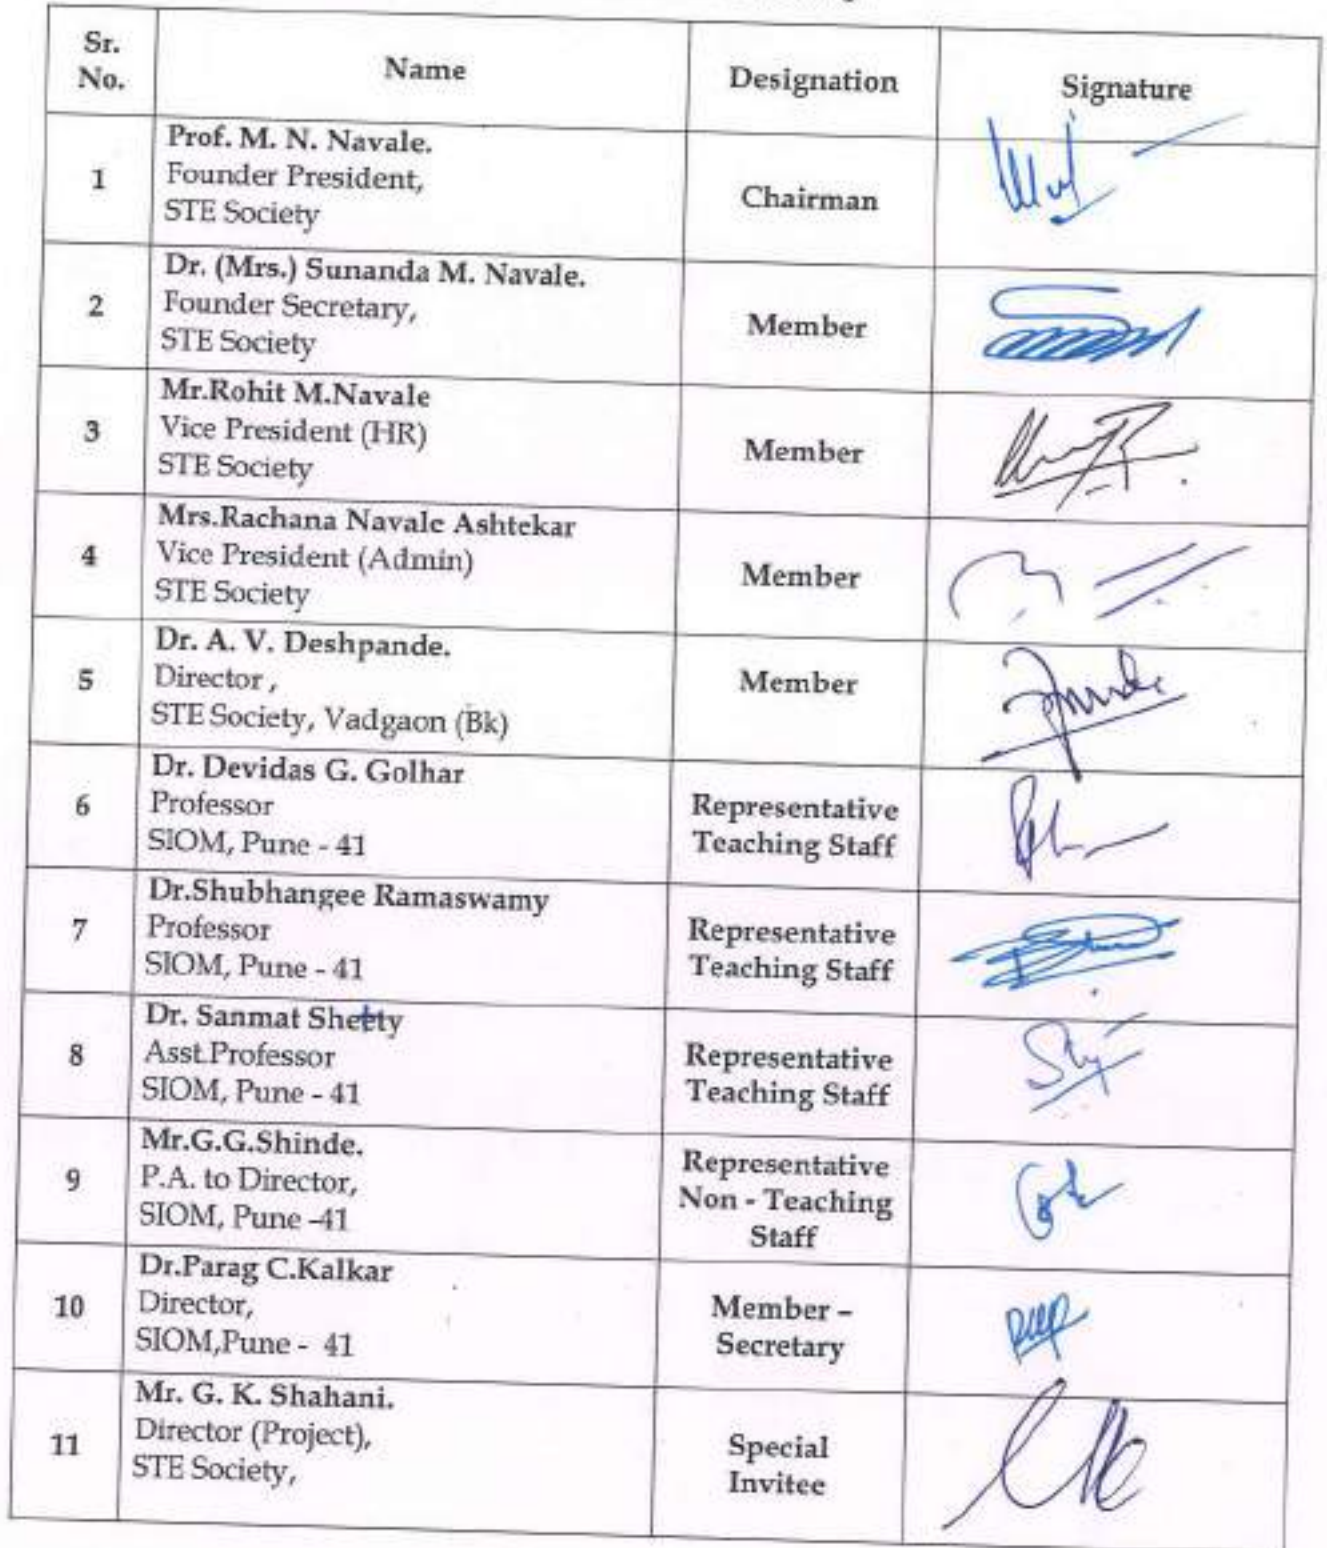 Sr.
No.
Name
Designation
Signature
1
Prof. M. N. Navale.
Founder President,
STE Society
Chairman
2
Dr. (Mrs.) Sunanda M. Navale.
Founder Secretary,
STE Society
Member
3
Mr.Rohit M.Navale
Vice President (HR)
STE Society
Member
4
Mrs.Rachana Navale Ashtekar
Vice President (Admin)
STE Society
Member
5
Dr. A. V. Deshpande.
Director ,
STE Society, Vadgaon (Bk)
Member
6
Dr. Devidas G. Golhar
Professor
SIOM, Pune - 41
Representative
Teaching Staff
7
Dr.Shubhangee Ramaswamy
Professor
SIOM, Pune - 41
Representative
Teaching Staff
8
Dr. Sanmat Shetty
Asst.Professor
SIOM, Pune - 41
Representative
Teaching Staff
9
Mr.G.G.Shinde.
P.A. to Director,
SIOM, Pune -41
Representative
Non - Teaching
Staff
10
Dr.Parag C.Kalkar
Director,
SIOM,Pune - 41
Member –
Secretary
11
Mr. G. K. Shahani.
Director (Project),
STE Society,
Special
Invitee